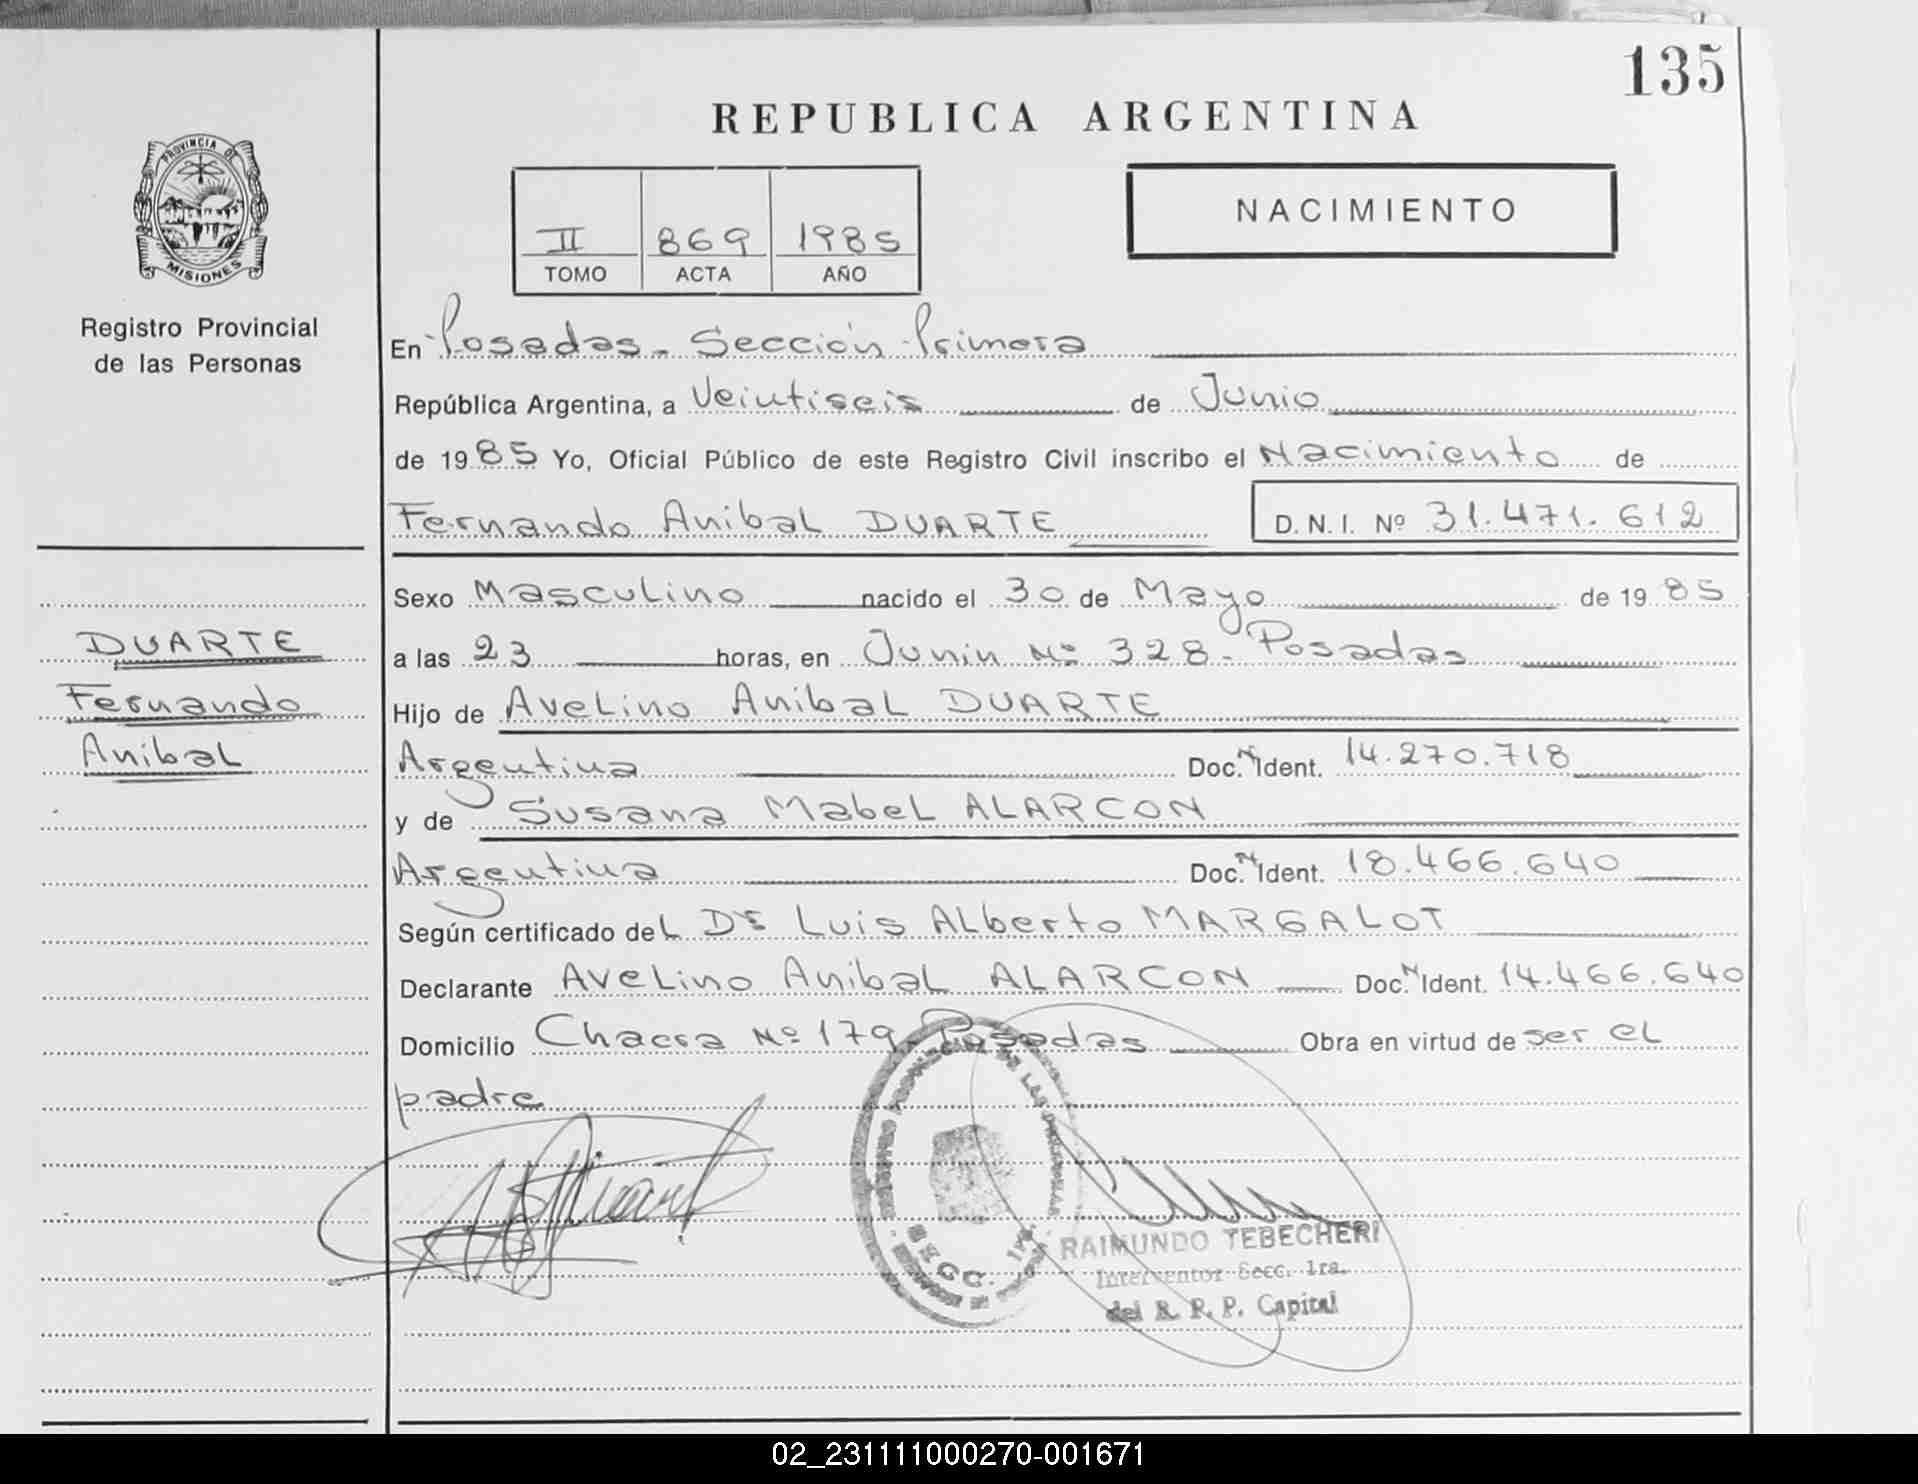 135
REPUBLICA ARGENTINA
PROVINCIA DE
MISIONES
Registro Provincial
de las Personas
II 869 1985
TOMO ACTA AÑO
NACIMIENTO
En Posadas - Sección Primera
República Argentina, a Veintiseis de Junio
de 1985 Yo, Oficial Público de este Registro Civil inscribo el Nacimiento de
Fernando Anibal DUARTE D.N.I. Nº 31.471.612
DUARTE
Fernando
Anibal
Sexo Masculino nacido el 30 de Mayo de 1985
a las 23 horas, en Junin Nº 328 - Posadas
Hijo de Avelino Anibal DUARTE
Argentina Doc. N Ident. 14.270.718
y de Susana Mabel ALARCON
Argentina Doc. N Ident. 18.466.640
Según certificado del Dr Luis Alberto MARGALOT
Declarante Avelino Anibal ALARCON Doc. N Ident. 14.466.640
Domicilio Chacra Nº 179 Posadas Obra en virtud de ser el
padre
DE LAS
SECC. 1ra.
RAIMUNDO TEBECHERI
Interventor Secc. 1ra.
del R. P. P. Capital
02_231111000270-001671